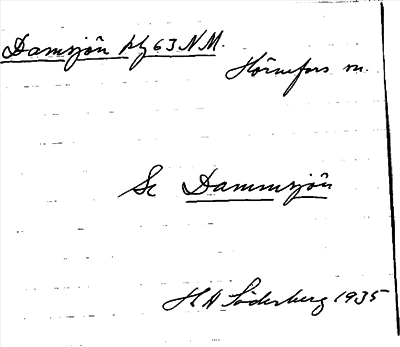 Damsjön bl 63 N.M.
Hörnefors sn.
Se Dammsjön
H A Söderberg 1935